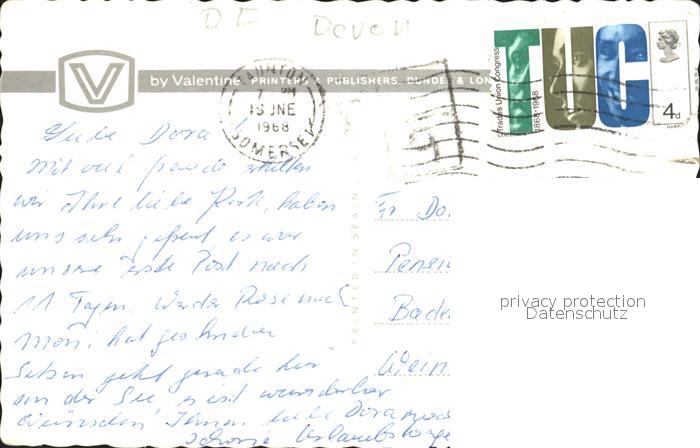 DE Devon
by Valentine PRINTERS & PUBLISHERS, DUNDEE & LON
TAUNTON
7 PM
18 JNE
1968
SOMERSET
Trades Union Congress
1868-1968
TUC
4d
PRINTED IN SPAIN
Liebe Dora
Mit viel Freude erhielten
wir Ihre liebe Post, haben
uns sehr gefreut, es war
unsere erste Post nach
11 Tagen. Weder Rose noch
Moni hat geschrieben
Sitzen jetzt gerade hier
an der See es ist wunderbar
Wünschen Ihnen liebe Dora noch
schöne Urlaubstage
Fr Do
Pensi
Bade
Wein
privacy protection
Datenschutz